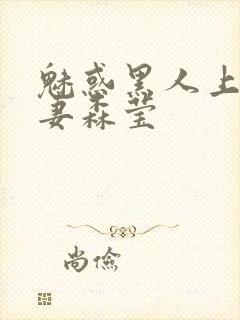 魅惑黑人上
妻森莹
尚俭